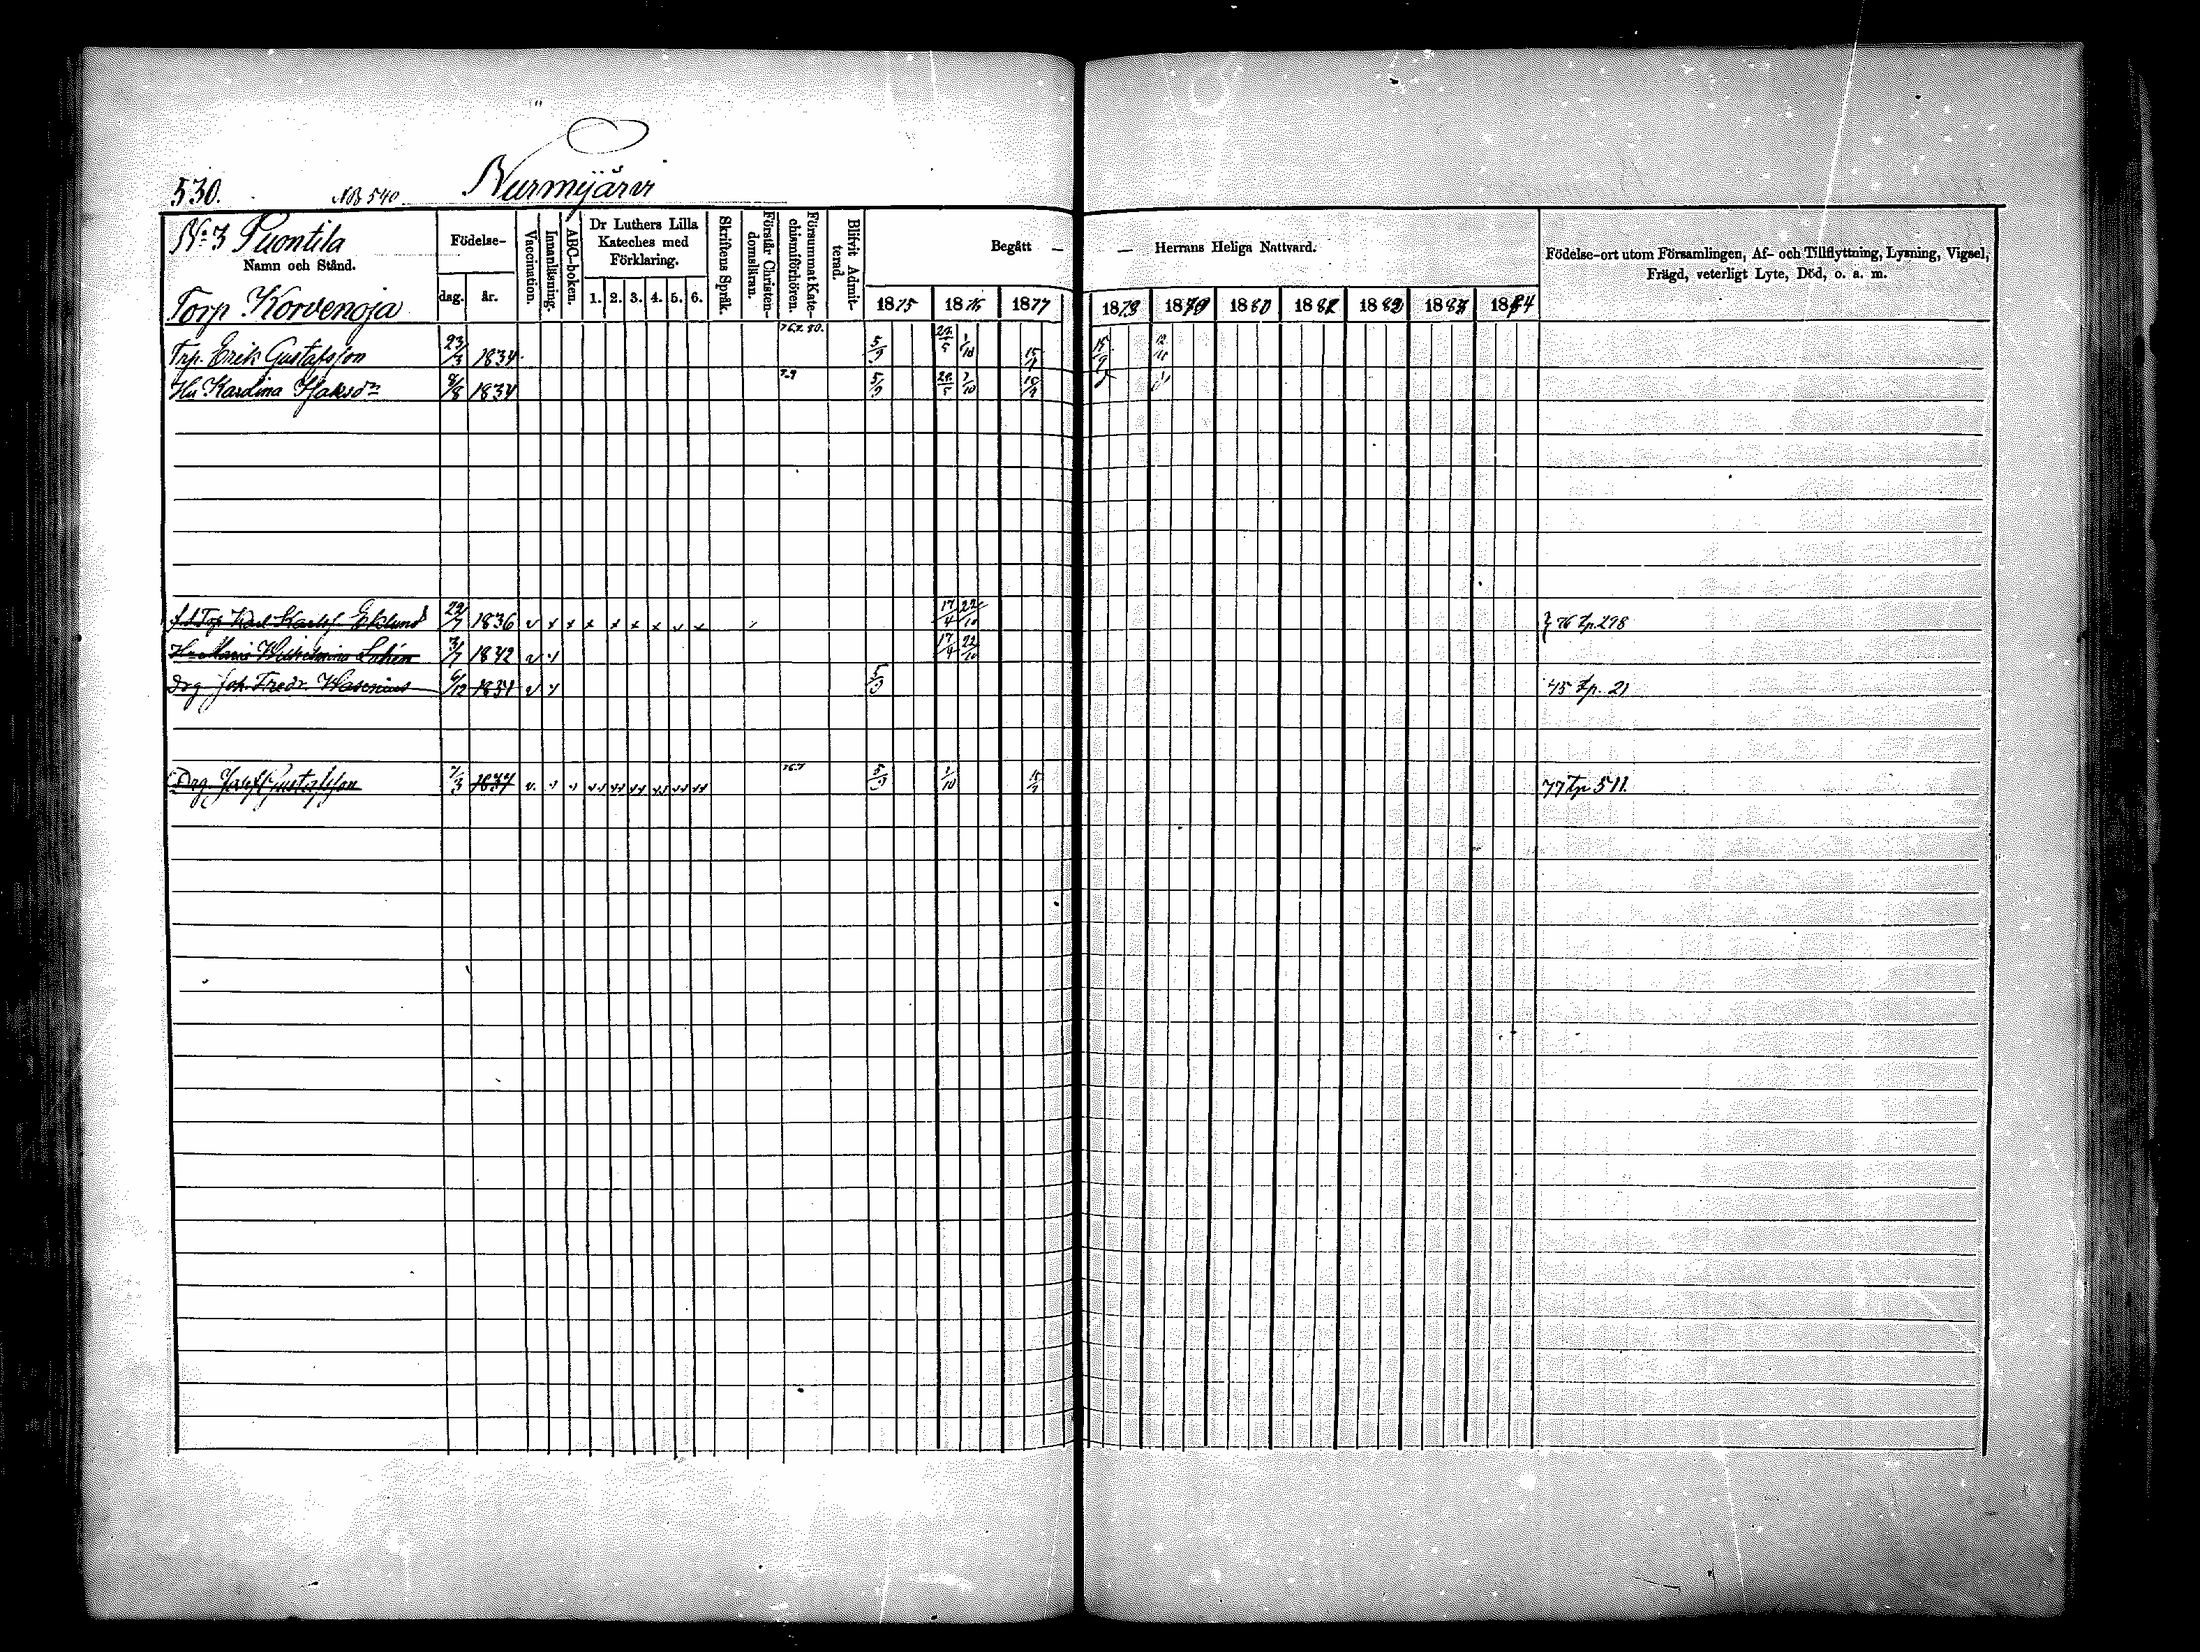 530. NB 540 Nurmijärvi
No 3 Puontila
Namn och Stånd.
Torp Korvenoja
Födelse-
dag. år.
Vaccination.
Innanläsning.
ABC-boken.
Dr Luthers Lilla
Kateches med
Förklaring.
1. 2. 3. 4. 5. 6.
Skriftens Språk.
Förstår Christen-
domsläran.
Försummat Kate-
chismiförhören.
Blifvit Admit-
terad.
Begått — — Herrans Heliga Nattvard.
1875 1876 1877 1878 1879 1880 1881 1882 1883 1884
Födelse-ort utom Församlingen, Af- och Tillflyttning, Lysning, Vigsel,
Frägd, veterligt Lyte, Död, o. a. m.
Trp. Erik Gustafsson 23/3 1834 5/9 1/10 15/9
Hu Karolina 1834 5/9 1/10
Karl Karlss. Eklund 29/7 1836 17/4 22/10 76 Tp. 278
Hu Maria Wilhelmina 1842 17/4 22/10
Drg Joh. Fredr. Wasenius 6/12 1831 5/9 75 Tp. 21
Drg. Josef Gustafsson 7/3 1837 5/9 1/10 77 Tp 511.